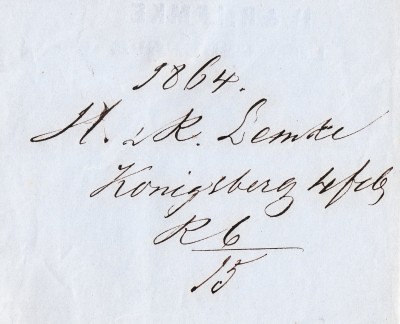 1864.
H. & R. Lemke
Königsberg 4 feb
R 6
15